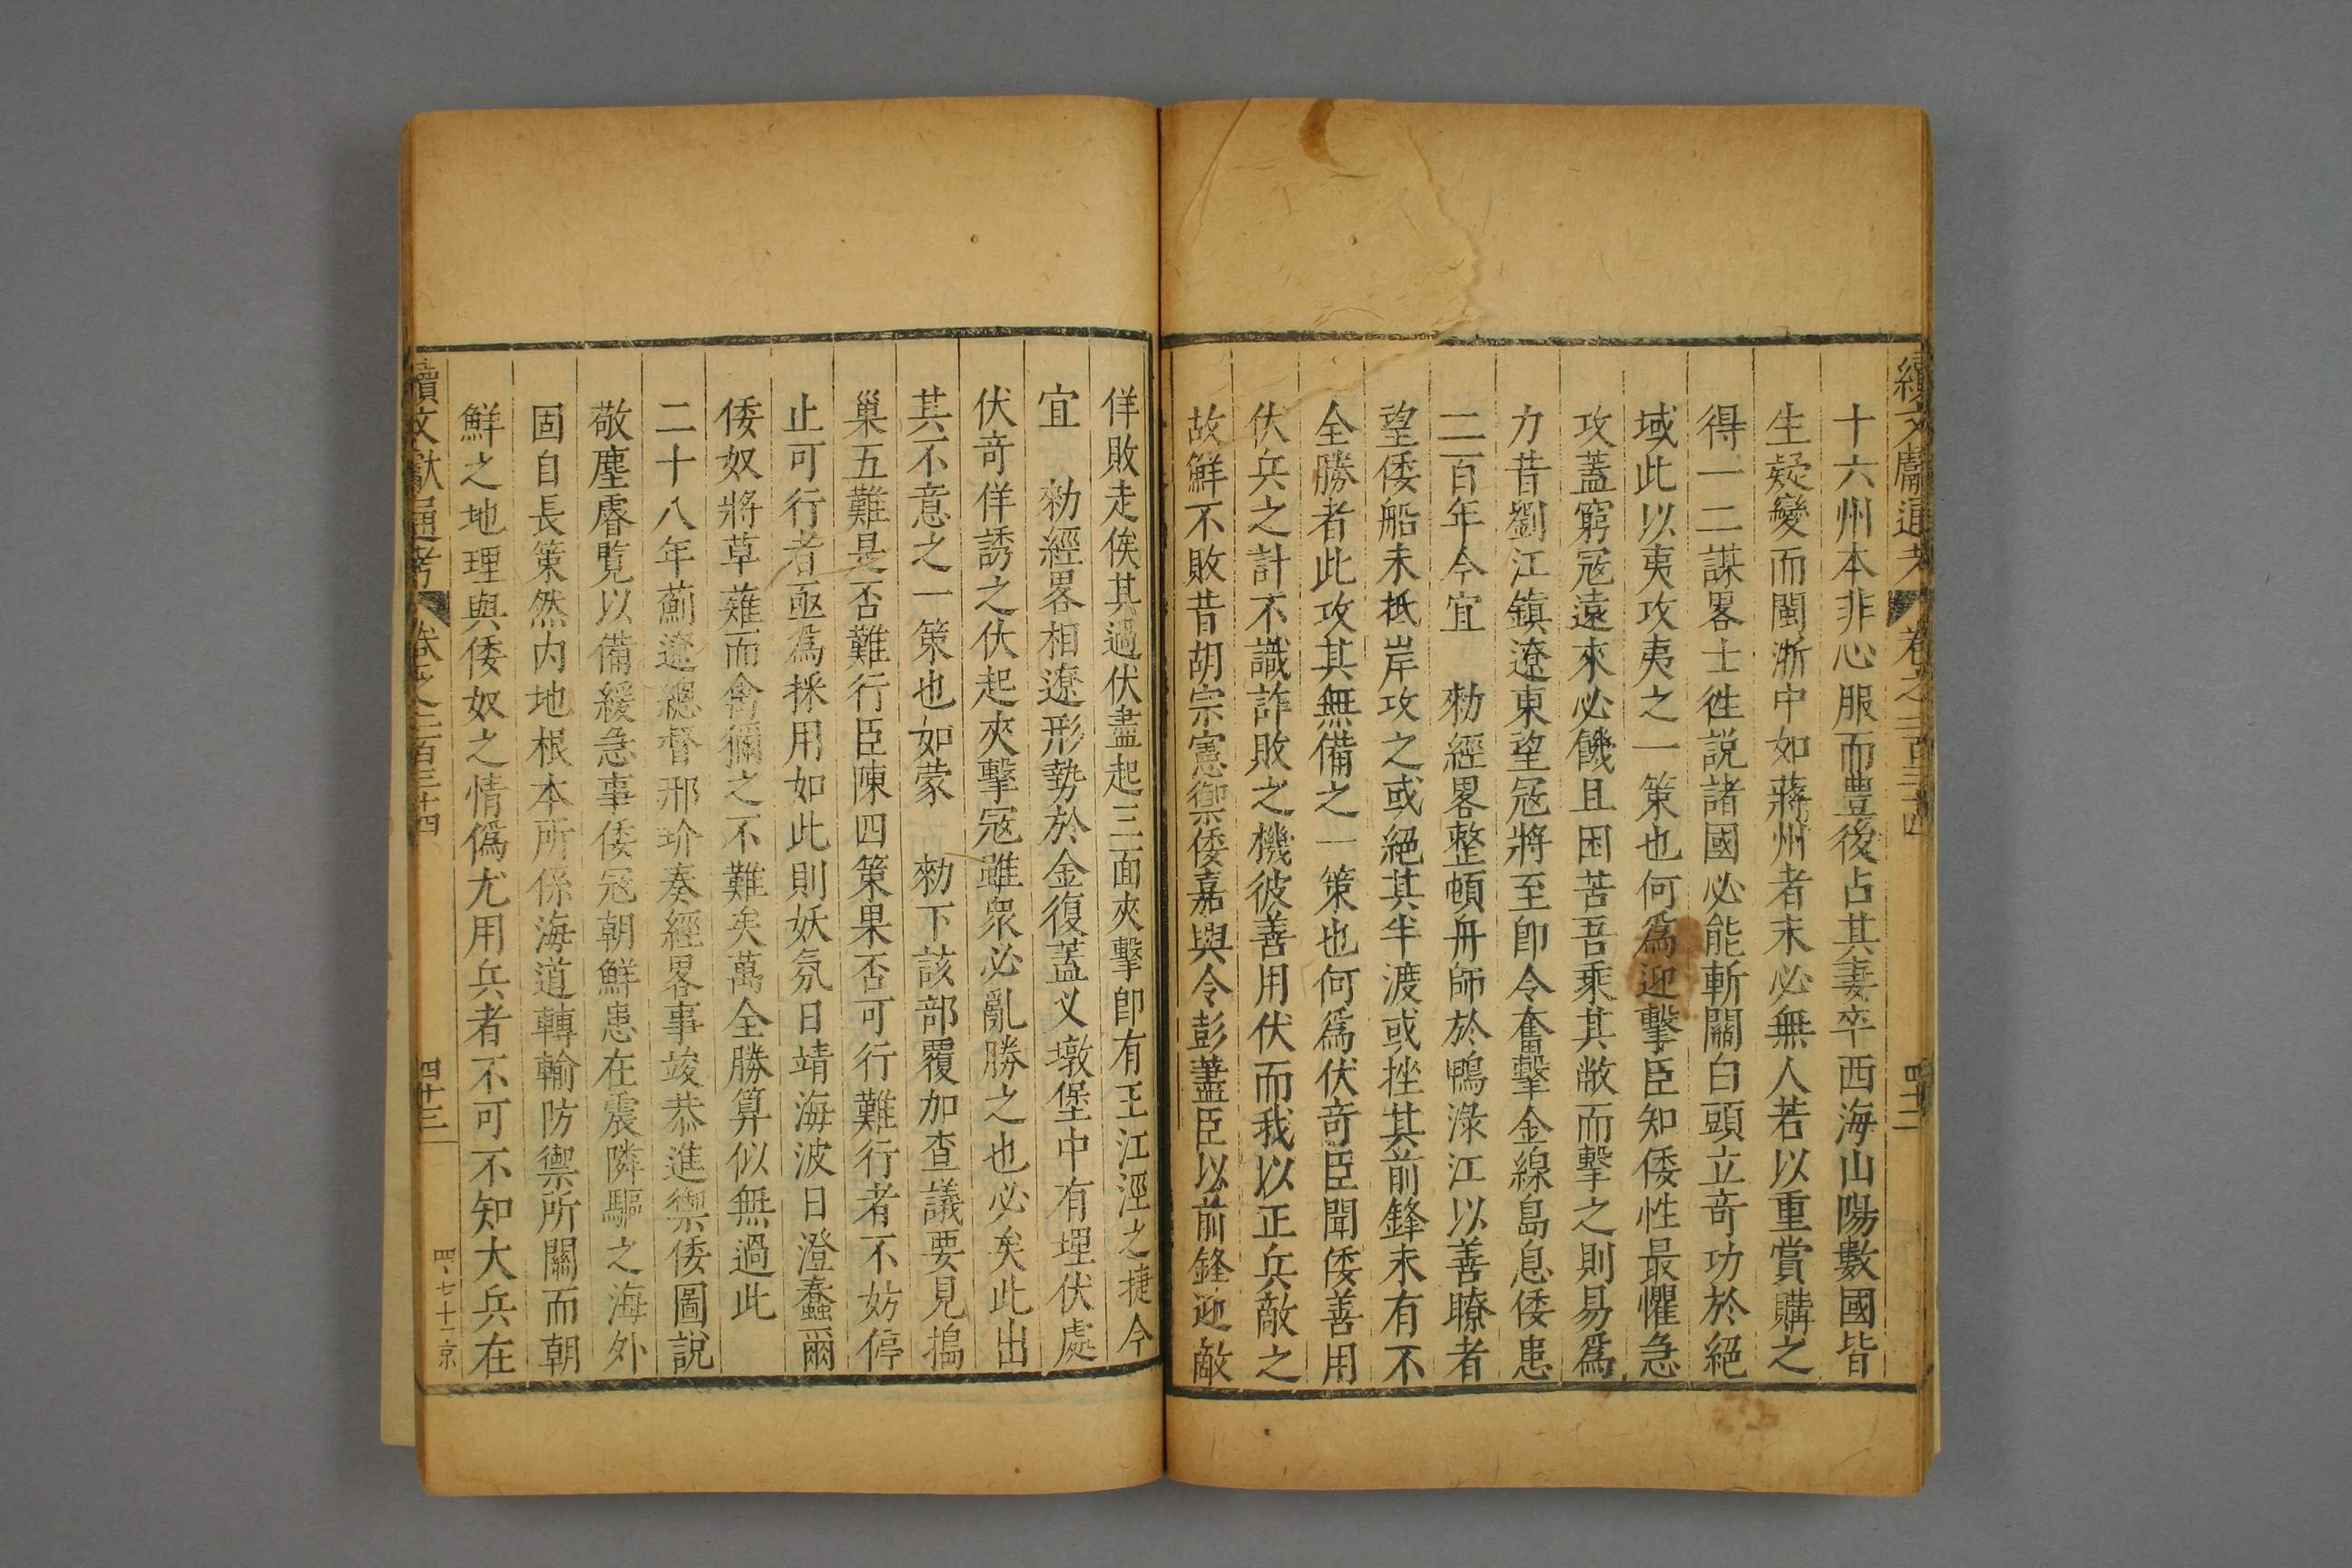 續文獻通考 卷之二百三十四 四十二
十六州本非心服而豊後占其妻卒西海山陽數國皆
生疑變而閩浙中如蔣州者未必無人若以重賞購之
得一二謀畧士徃説諸國必能斬關白頭立竒功於絕
域此以夷攻夷之一策也何爲迎擊臣知倭性最懼急
攻蓋窮寇遠來必饑且困苦吾乘其敝而擊之則易爲
力昔劉江鎮遼東望寇將至卽令奮擊金線島息倭患
二百年今宜 勑經畧整頓舟師於鴨淥江以善瞭者
望倭船未抵岸攻之或絕其半渡或挫其前鋒未有不
全勝者此攻其無備之一策也何爲伏竒臣聞倭善用
伏兵之計不識詐敗之機彼善用伏而我以正兵敵之
故鮮不敗昔胡宗憲禦倭嘉興令彭藎臣以前鋒迎敵
佯敗走俟其過伏盡起三面夾擊卽有王江涇之捷今
宜 勑經畧相遼形勢於金復蓋义墩堡中有埋伏處
伏竒佯誘之伏起夾擊寇雖衆必亂勝之也必矣此出
其不意之一策也如蒙 勑下該部覆加查議要見搗
巢五難是否難行臣陳四策果否可行難行者不妨停
止可行者亟爲採用如此則妖氛日靖海波日澄蠢爾
倭奴將草薙而禽獮之不難矣萬全勝算似無過此
二十八年薊遼總督邢玠奏經畧事竣恭進禦倭圖說
敬塵睿覧以備緩急事倭寇朝鮮患在震隣驅之海外
固自長策然内地根本所係海道轉輸防禦所關而朝
鮮之地理與倭奴之情僞尤用兵者不可不知大兵在
續文獻通考 卷之二百三十四 四十三
四七十一京